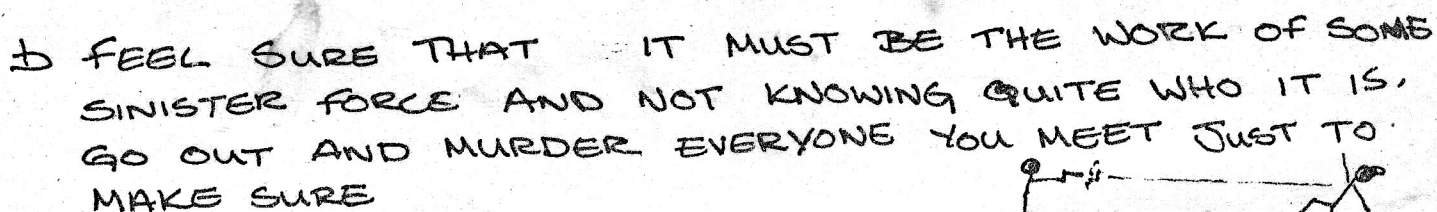 b FEEL SURE THAT IT MUST BE THE WORK OF SOME
SINISTER FORCE AND NOT KNOWING QUITE WHO IT IS,
GO OUT AND MURDER EVERYONE YOU MEET JUST TO
MAKE SURE